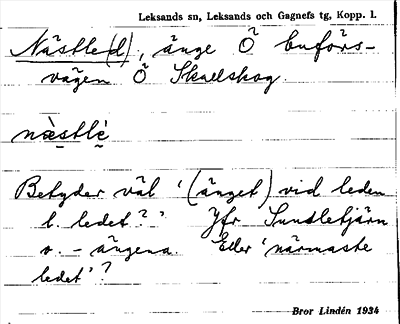 Leksands sn, Leksands och Gagnefs tg, Kopp. l.
Nästle(d), änge Ö buförs-
vägen Ö Skallskog.
næ̀stlè̬
Betyder väl '(änget) vid leden
l. ledet?' Jfr Sundletjärn
o. -ängena. Eller 'närmaste
ledet'?
Bror Lindén 1934